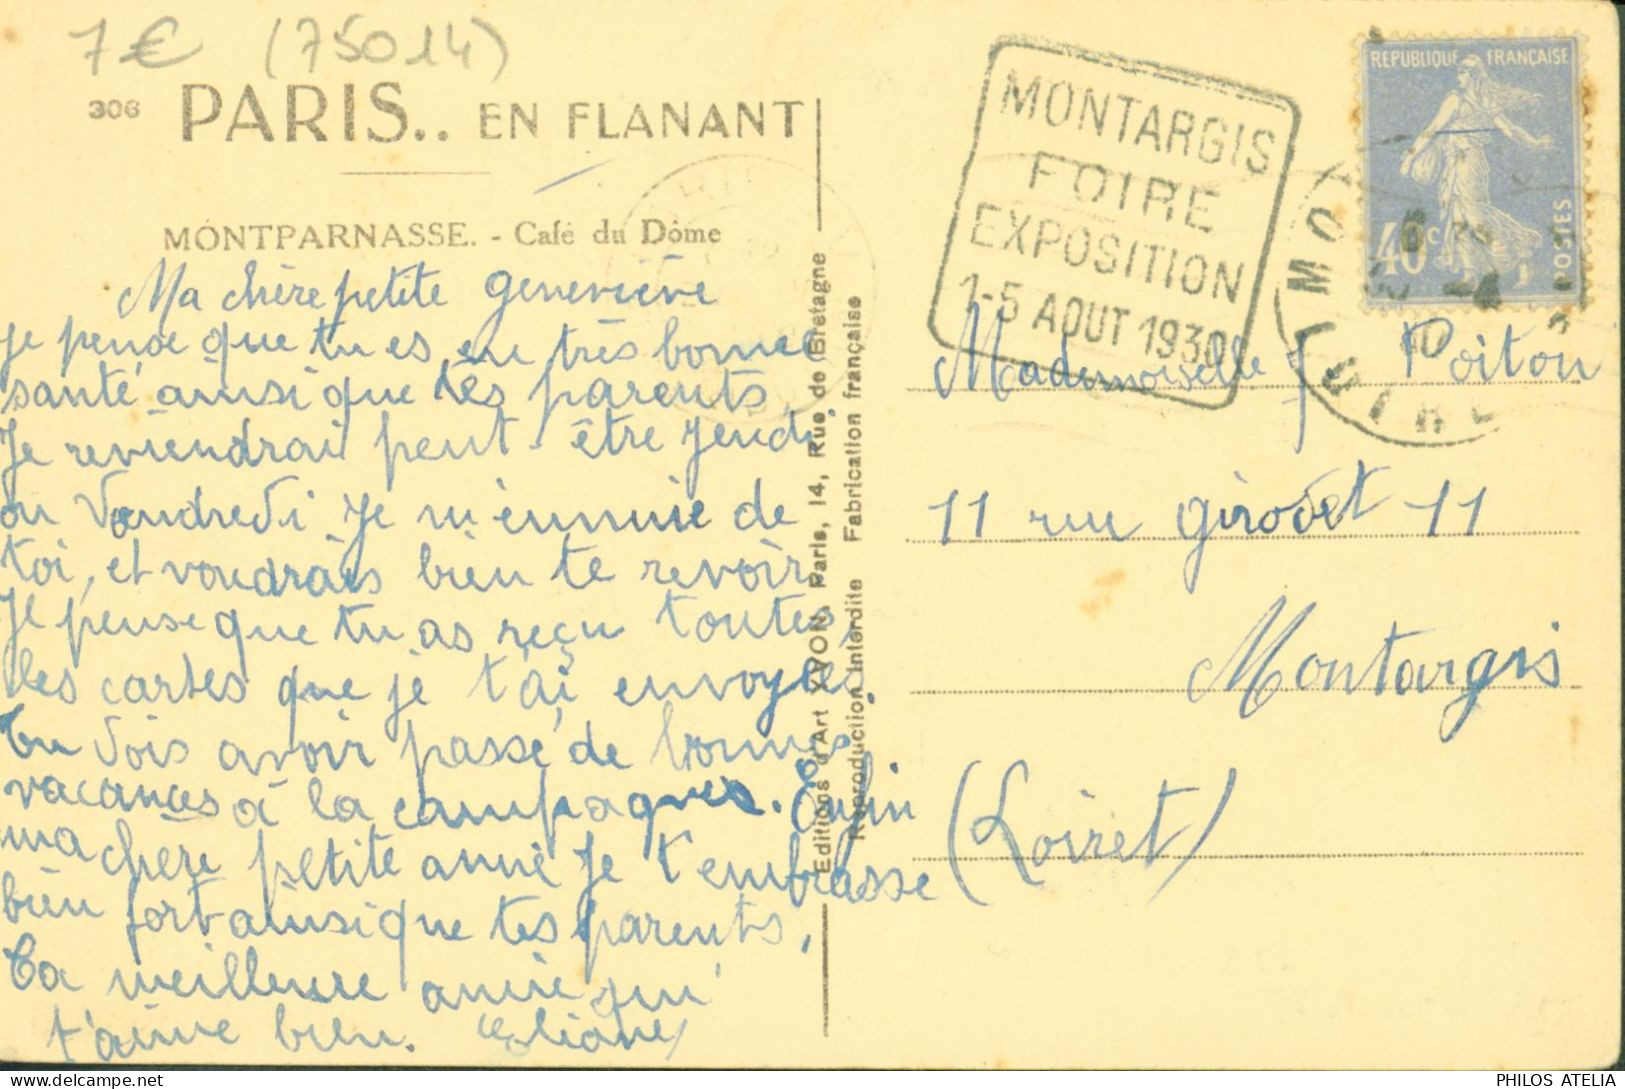 7€ (75014)
306 PARIS.. EN FLANANT
MONTPARNASSE. - Café du Dôme
Ma chère petite Geneviève
je pense que tu es en très bonne
santé ainsi que tes parents
Je reviendrai peut-être Jeudi
ou Vendredi je m'ennuie de
toi, et voudrais bien te revoir
Je pense que tu as reçu toutes
les cartes que je t'ai envoyés.
Tu dois avoir passé de bonnes
vacances à la campagne. Enfin
ma chere petite amie je t'embrasse
bien fort ainsi que tes parents,
Ta meilleure amie qui
t'aime bien. Eliane
Editions d'Art YVON, Paris, 14, Rue de Bretagne
Reproduction interdite Fabrication française
MONTARGIS
FOIRE
EXPOSITION
1-5 AOUT 1930
REPUBLIQUE FRANÇAISE
40c
POSTES
Mademoiselle J Poiton
11 rue Girodet 11
Montargis
(Loiret)
PHILOS ATELIA